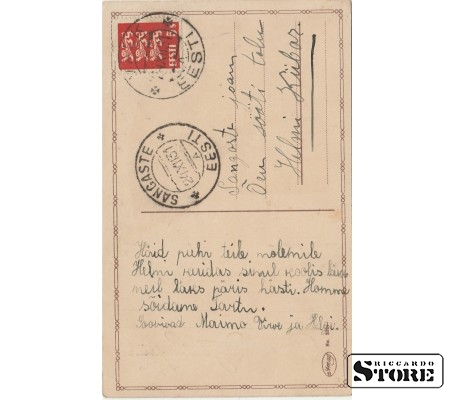 EESTI
EESTI
SANGASTE
20.XII.31
EESTI
Sangaste jaam
Õru sööti talu
Helmi Kübar
Häid pühi teile mõlemile
Helmi kuidas sinul koolis läks
meil läks päris hästi. Homme
sõidame Tartu.
Soovivad Maimo Virve ja Helgi.
RICCARDO
STORE